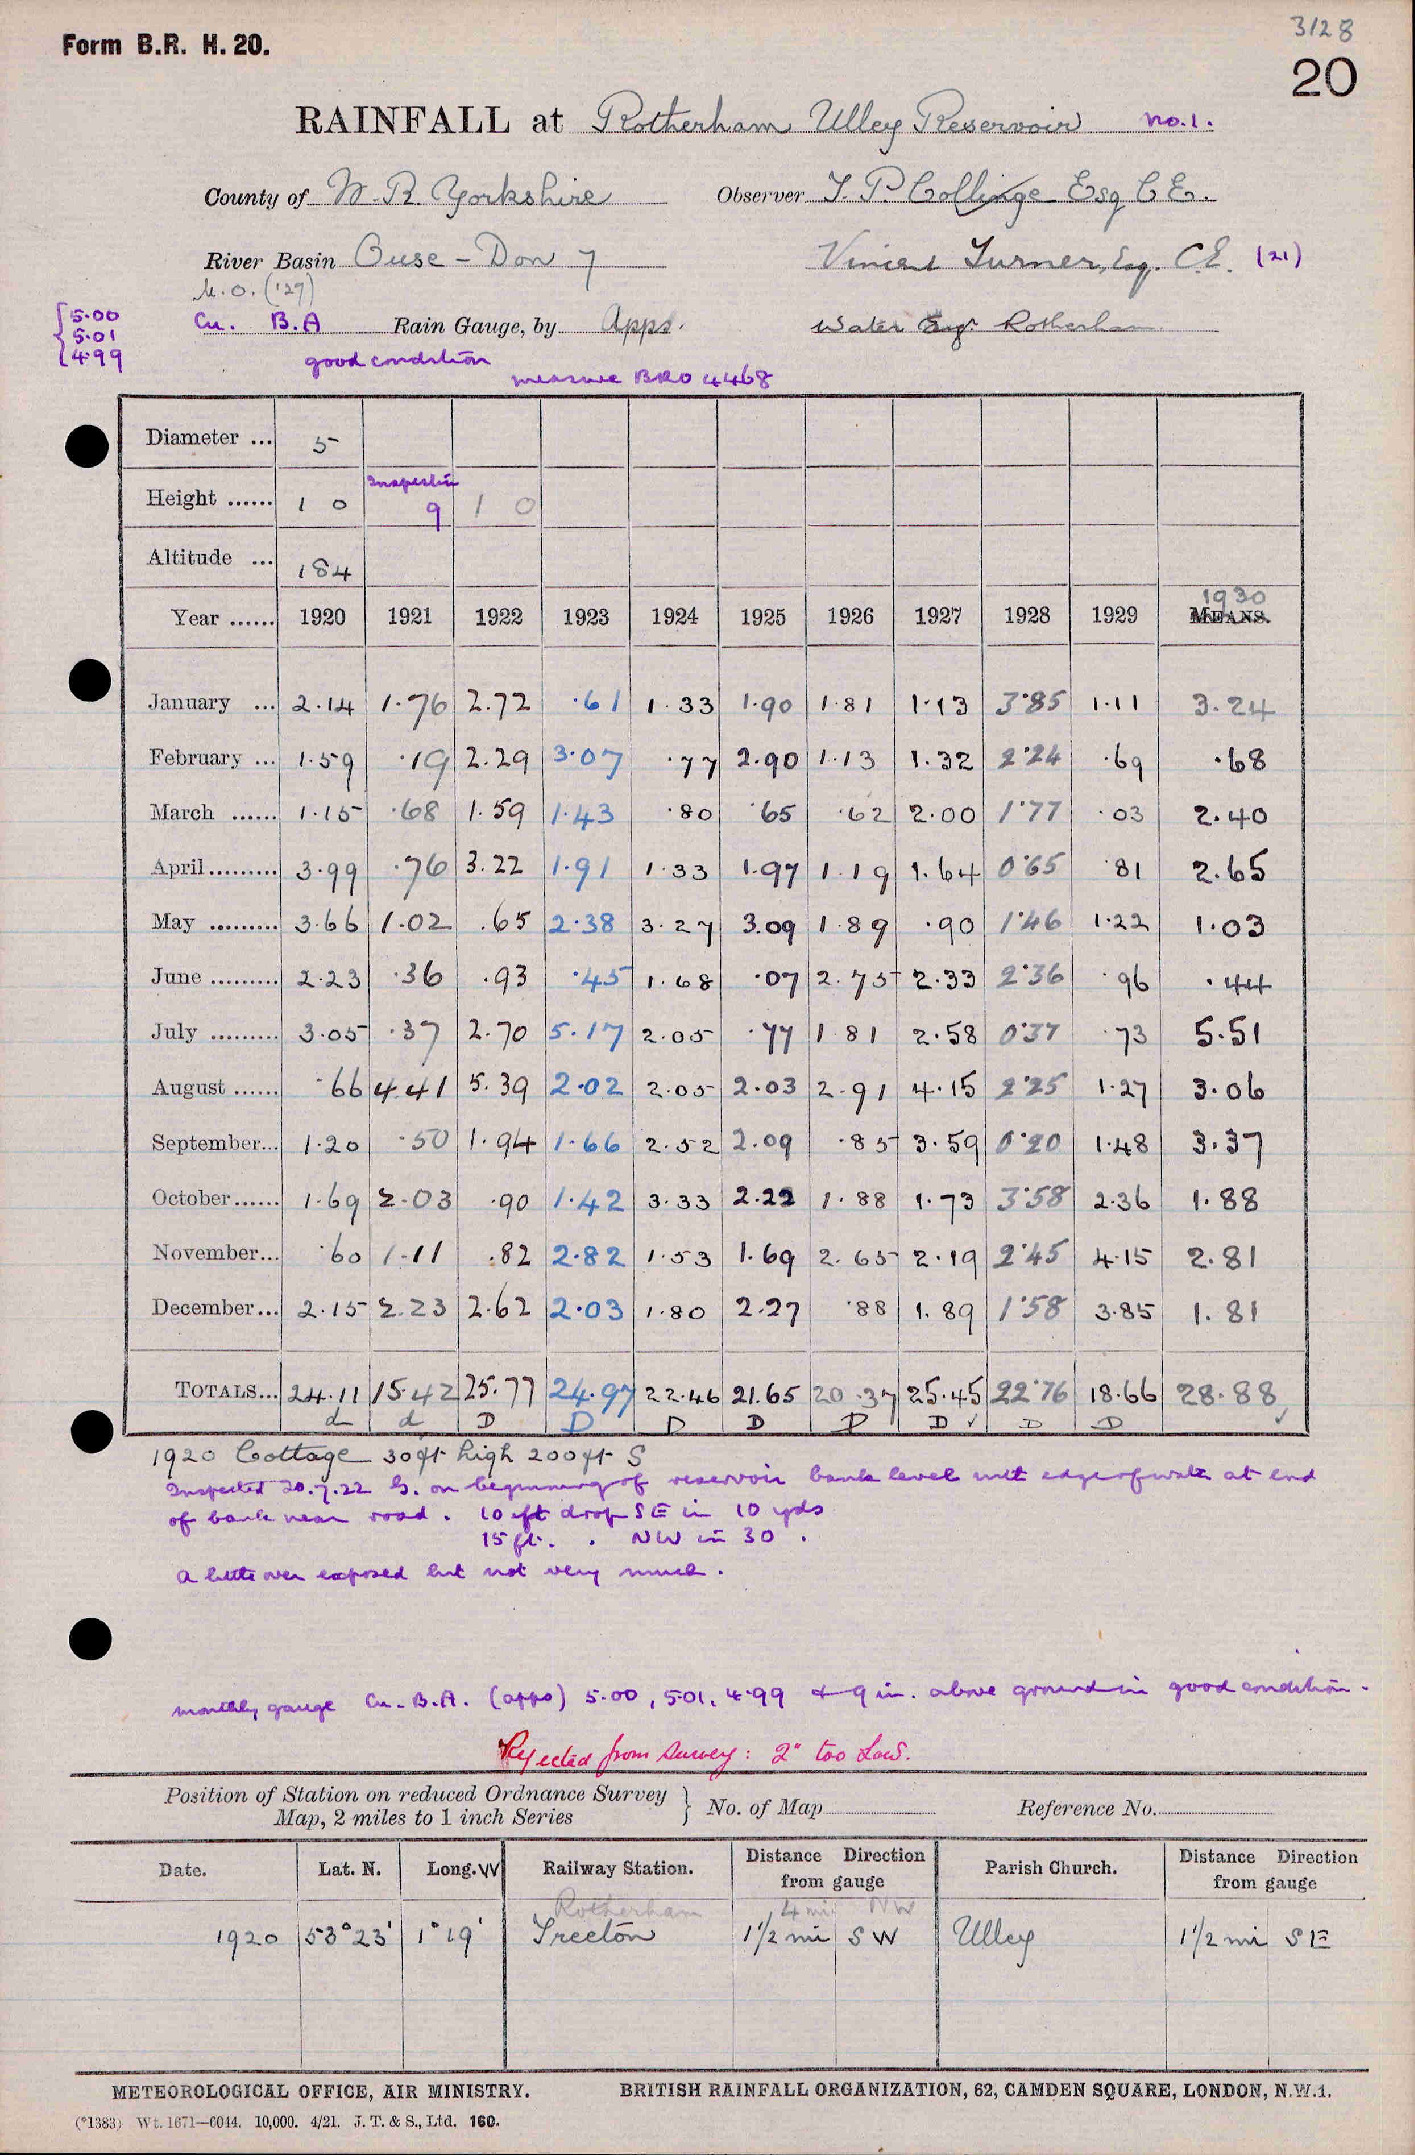 3128
Form B.R. H. 20.
20
RAINFALL at Rotherham Ulley Reservoir No. 1.
County of W. R Yorkshire Observer T. P. Collinge Esq C E.
River Basin Ouse - Don 7 Vincent Turner, Esq. C.E. (21)
M.O. ('27)
5.00
5.01
4.99
Cu. B.A Rain Gauge, by Apps. Water Engr Rotherham
good condition
measure BRO 4468
Diameter ... 5
Height ...... 1 0 Inspection 9 1 0
Altitude ... 184
Year ...... 1920 1921 1922 1923 1924 1925 1926 1927 1928 1929 1930 MEANS.
January ... 2.14 1.76 2.72 .61 1.33 1.90 1.81 1.13 3.85 1.11 3.24
February ... 1.59 .19 2.29 3.07 .77 2.90 1.13 1.32 2.24 .69 .68
March ...... 1.15 .68 1.59 1.43 .80 .65 .62 2.00 1.77 .03 2.40
April ......... 3.99 .76 3.22 1.91 1.33 1.97 1.19 1.64 0.65 .81 2.65
May ......... 3.66 1.02 .65 2.38 3.27 3.09 1.89 .90 1.46 1.22 1.03
June ......... 2.23 .36 .93 .45 1.68 .07 2.75 2.33 2.36 .96 .44
July ......... 3.05 .37 2.70 5.17 2.05 .77 1.81 2.58 0.37 .73 5.51
August ...... .66 4.41 5.39 2.02 2.05 2.03 2.91 4.15 2.25 1.27 3.06
September... 1.20 .50 1.94 1.66 2.52 2.09 .85 3.59 0.20 1.48 3.37
October ...... 1.69 2.03 .90 1.42 3.33 2.22 1.88 1.73 3.58 2.36 1.88
November... .60 1.11 .82 2.82 1.53 1.69 2.65 2.19 2.45 4.15 2.81
December... 2.15 2.23 2.62 2.03 1.80 2.27 .88 1.89 1.58 3.85 1.81
TOTALS... 24.11 15.42 25.77 24.97 22.46 21.65 20.37 25.45 22.76 18.66 28.88
d d D D D D D D ✓ D D ✓
1920 Cottage 30ft high 200ft S
Inspected 20.7.22 G. on beginning of reservoir bank level with edge of water at end
of bank near road. 10 ft drop SE in 10 yds
15 ft. . NW in 30 .
A little over exposed but not very much.
monthly gauge Cu. B.A. (apps) 5.00, 5.01, 4.99 & 9 in. above ground in good condition.
Rejected from Survey: 2" too Low.
Position of Station on reduced Ordnance Survey
Map, 2 miles to 1 inch Series } No. of Map Reference No.
Date. Lat. N. Long. W Railway Station. Distance Direction from gauge Parish Church. Distance Direction from gauge
Rotherham 4 mi NW
1920 53°23' 1°19' Treeton 1 1/2 mi SW Ulley 1 1/2 mi SE
METEOROLOGICAL OFFICE, AIR MINISTRY. BRITISH RAINFALL ORGANIZATION, 62, CAMDEN SQUARE, LONDON, N.W.1.
(*1383) Wt. 1671—6044. 10,000. 4/21. J. T. & S., Ltd. 160.